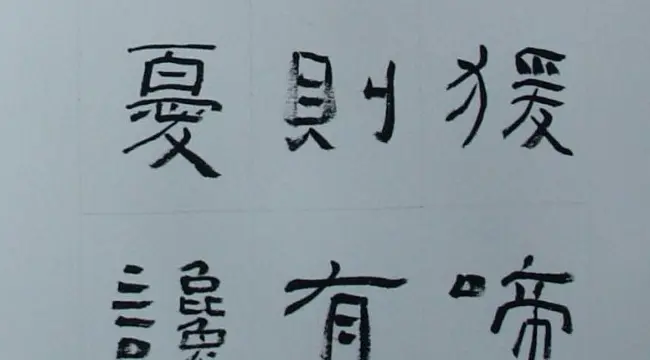 猨啼
則有
憂讒